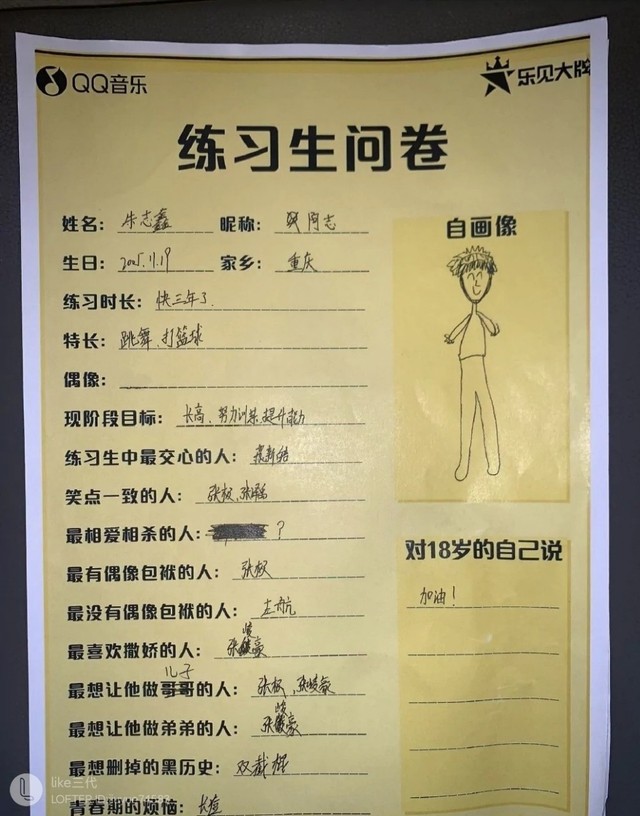 QQ音乐
乐见大牌
练习生问卷
姓名： 朱志鑫 昵称： 阿志
生日： 2005.11.19 家乡： 重庆
练习时长： 快三年了.
特长： 跳舞、打篮球
偶像：
现阶段目标： 长高、努力训练,提升能力
练习生中最交心的人： 苏新皓
笑点一致的人： 张极、张瑶
最相爱相杀的人： ？
最有偶像包袱的人： 张极
最没有偶像包袱的人： 左航
最喜欢撒娇的人： 张峻豪
儿子
最想让他做哥哥的人： 张极、张峻豪
最想让他做弟弟的人： 张峻豪
最想删掉的黑历史： 双截棍
青春期的烦恼： 长痘
自画像
对18岁的自己说
加油！
like三代
LOFTER ID: